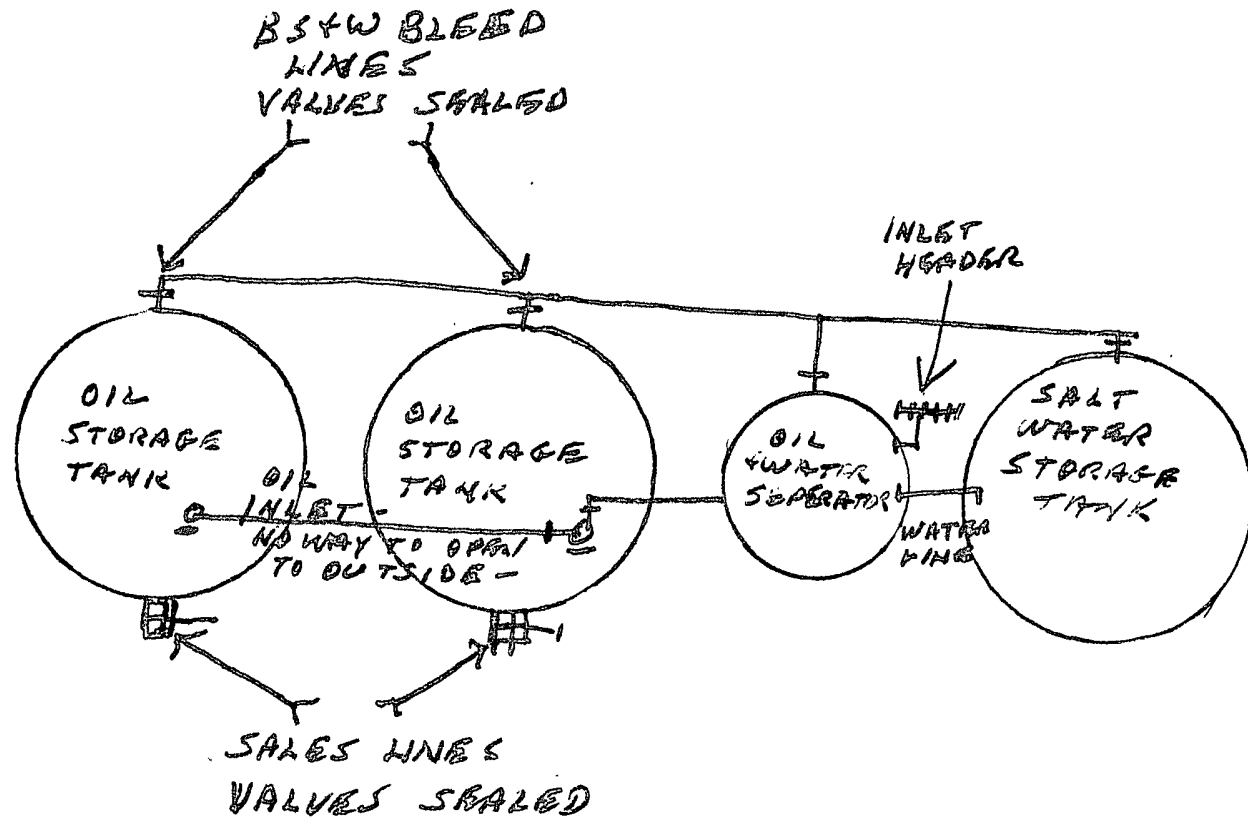 BS+W BLEED
LINES
VALVES SEALED
INLET
HEADER
OIL
STORAGE
TANK
OIL
STORAGE
TANK
OIL
+WATER
SEPERATOR
SALT
WATER
STORAGE
TANK
OIL
INLET -
NO WAY TO OPEN
TO OUTSIDE -
WATER
LINE
SALES LINES
VALVES SEALED